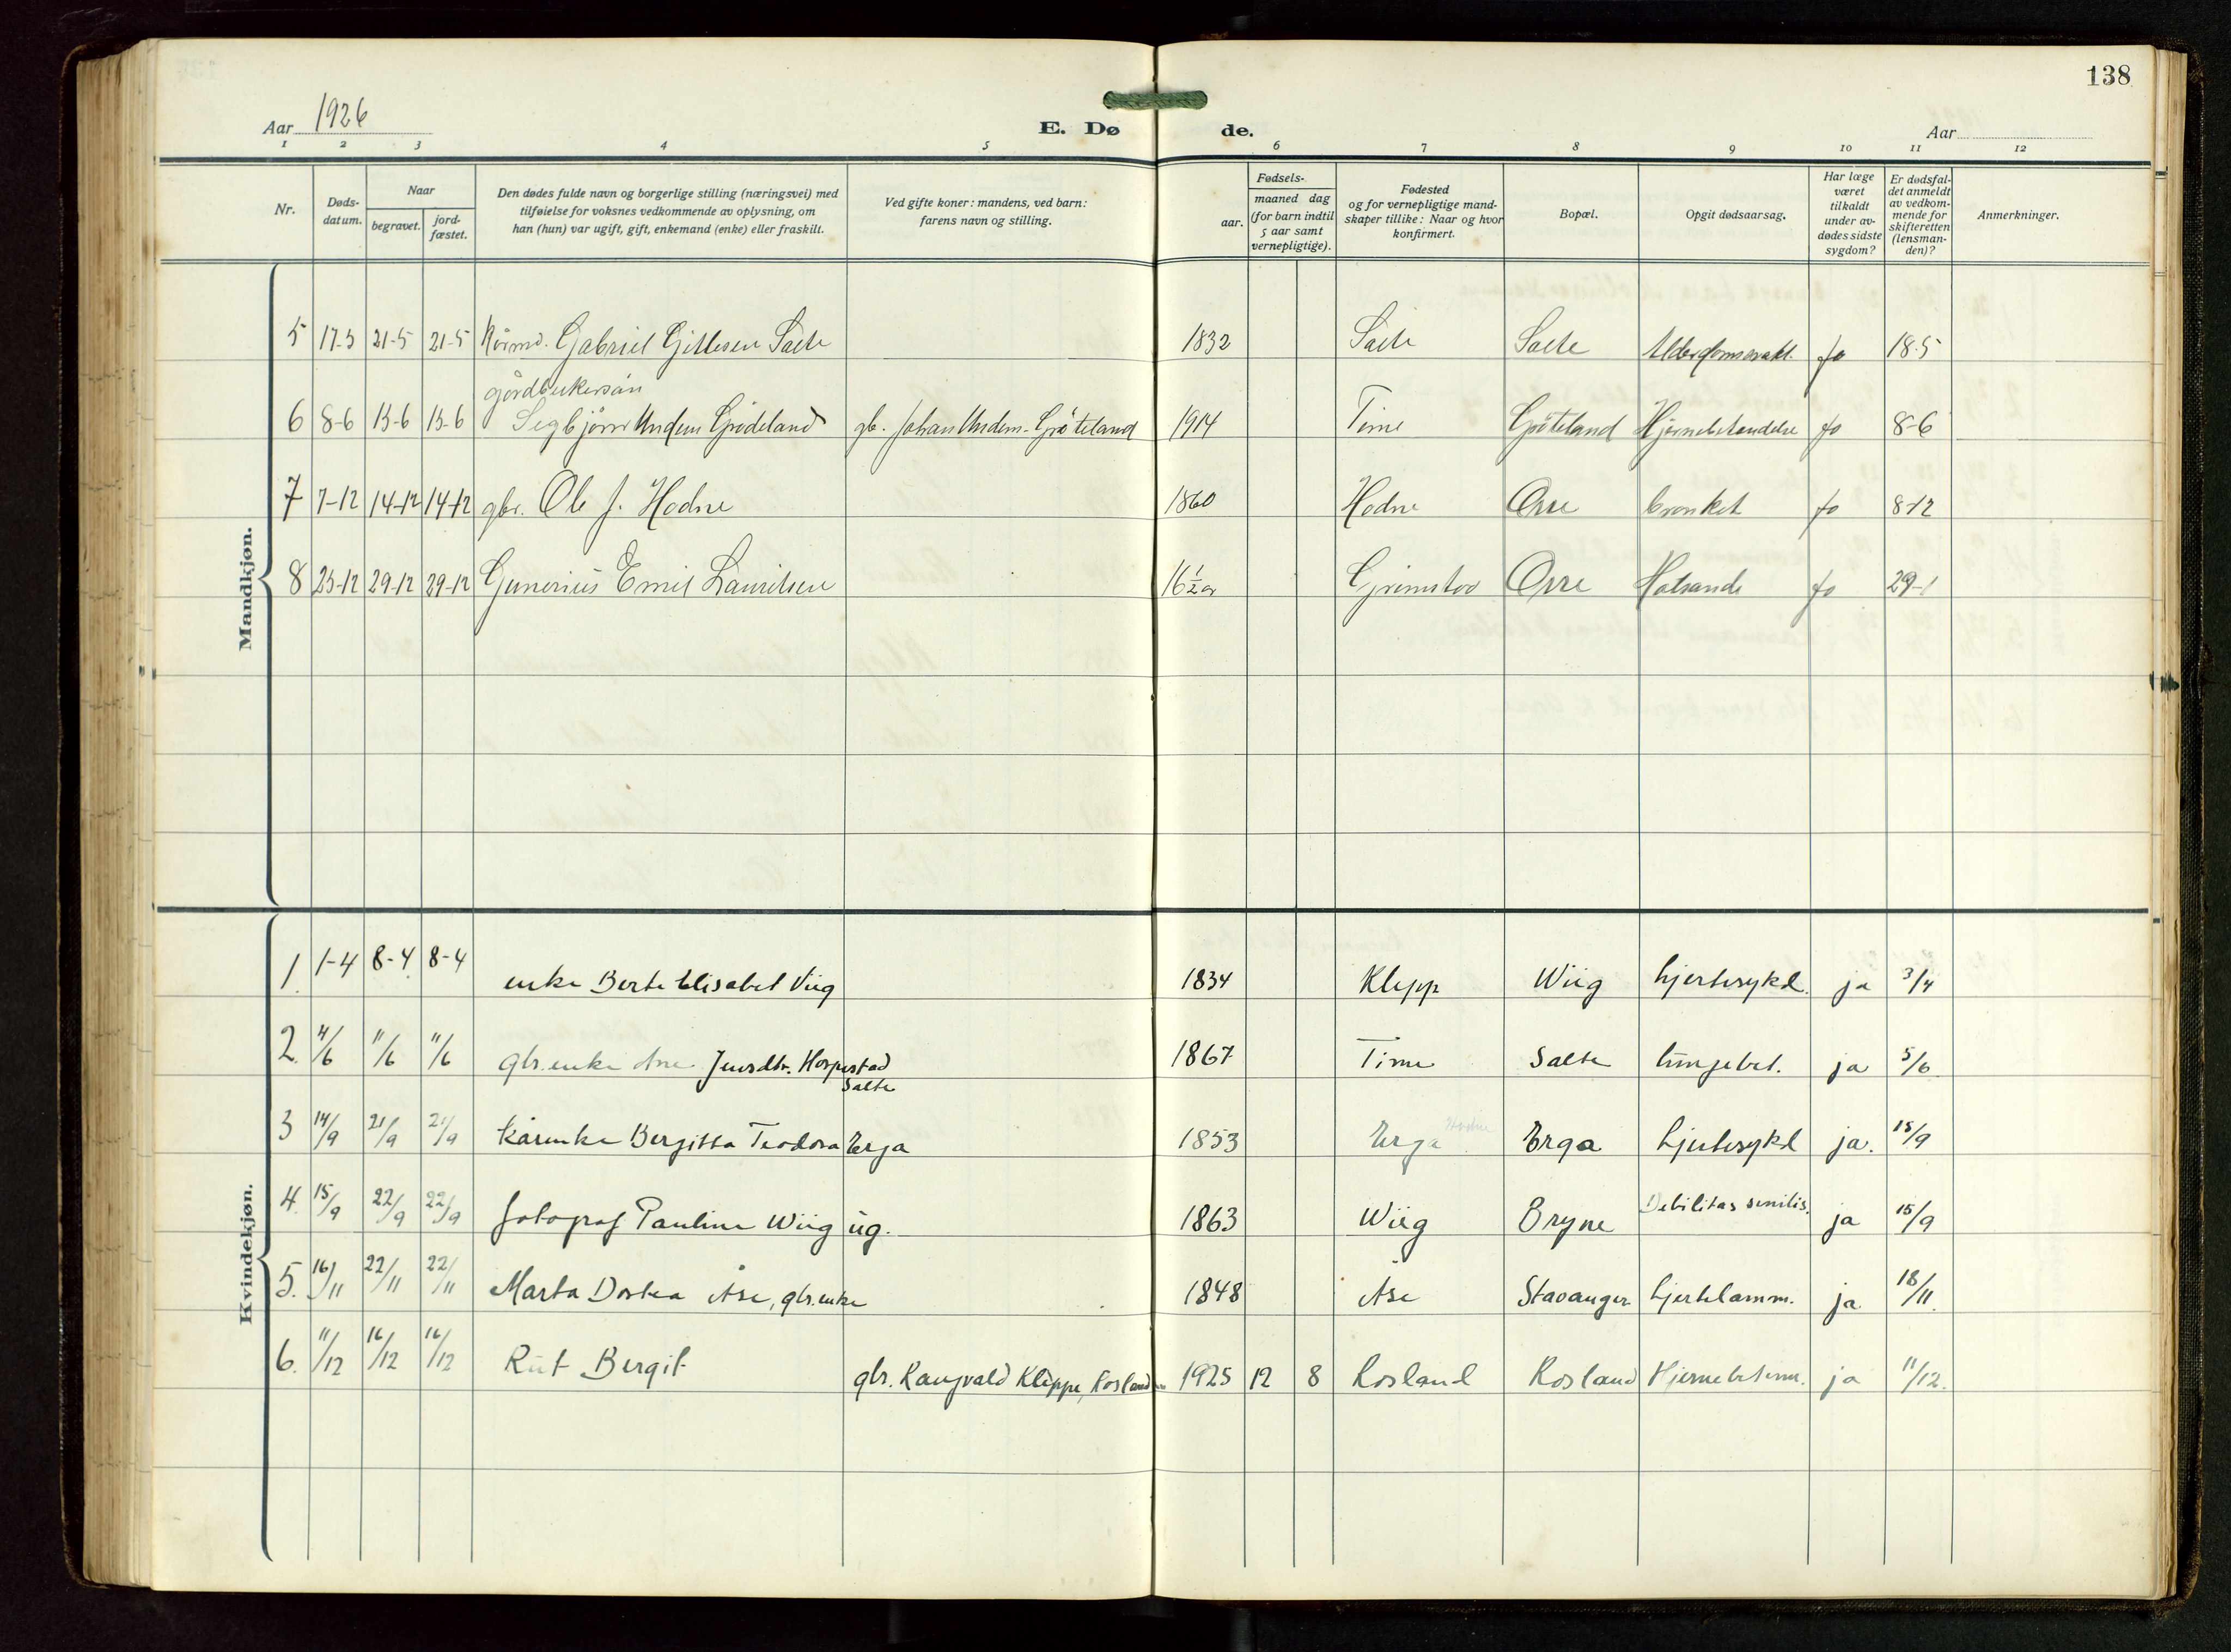 138
Aar 1926
E. Dø de.
Aar
1 2 3 4 5 6 7 8 9 10 11 12
Nr.
Døds-
datum.
Naar
begravet.
jord-
fæstet.
Den dødes fulde navn og borgerlige stilling (næringsvei) med
tilføielse for voksnes vedkommende av oplysning, om
han (hun) var ugift, gift, enkemand (enke) eller fraskilt.
Ved gifte koner: mandens, ved barn:
farens navn og stilling.
Fødsels-
aar.
maaned dag
(for barn indtil
5 aar samt
vernepligtige).
Fødested
og for vernepligtige mand-
skaper tillike: Naar og hvor
konfirmert.
Bopæl.
Opgit dødsaarsag.
Har læge
været
tilkaldt
under av-
dødes sidste
sygdom?
Er dødsfal-
det anmeldt
av vedkom-
mende for
skifteretten
(lensman-
den)?
Anmerkninger.
Mandkjøn.
5 17-5 21-5 21-5 Gabriel Gitlesen Salte 1832 Salte Salte Jo 18-5
gårdbrukersøn
6 8-6 13-6 13-6 Undem Grødeland gb. Johan Undem-Grøteland 1914 Time Grøteland Hjernebetændelse Jo 8-6
7 7-12 14-12 14-12 gbr. Ole J. Hodne 1860 Hodne Orre bronkit Jo 8-12
8 23-12 29-12 29-12 Gunerius Emil Lauritsen 16 1/2 år Orre Jo 29-1
Kvindekjøn.
1. 1-4 8-4 8-4 enke Berte Elisabet Viig 1834 Klepp Wiig hjertesykd. ja 3/4
2. 4/6 11/6 11/6 gbr.enke Ane Jensdtr. Hognestad 1867 Time Salte lungebet. ja 5/6
Salte
3 14/9 21/9 21/9 kårenke Bergitta Teodora Erga 1853 Erga Hodne Erga hjertesykd ja. 15/9
4. 15/9 22/9 22/9 fotograf Pauline Wiig ug. 1863 Wiig Bryne Debilitas senilis. ja 15/9
5. 16/11 22/11 22/11 Marta Dortea Åse, gbr.enke 1848 Åse Stavanger hjertelamm. ja 18/11.
6. 11/12 16/12 16/12 Rut Bergit gbr. Rangvald Kleppe, Rosland 1925 12 8 Rosland Rosland Hjernebetenn. ja 11/12.